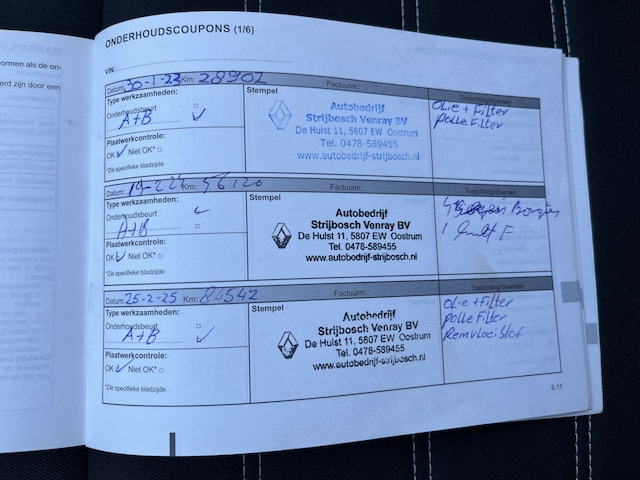 ONDERHOUDSCOUPONS (1/6)
VIN:
ormen als de on-
erd zijn door een
Datum: 30-1-23 Km: 28902
Factuurnr.
Type werkzaamheden:
Onderhoudsbeurt
A+B ✓
Plaatwerkcontrole:
OK ✓ Niet OK*
*Zie specifieke bladzijde
Stempel
Autobedrijf
Strijbosch Venray BV
De Hulst 11, 5807 EW Oostrum
Tel. 0478-589455
www.autobedrijf-strijbosch.nl
Toelichting/diversen
Olie + Filter
polle Filter
Datum: 19-2-24 Km: 56120
Factuurnr.
Type werkzaamheden:
Onderhoudsbeurt ✓
A+B
Plaatwerkcontrole:
OK ✓ Niet OK*
*Zie specifieke bladzijde
Stempel
Autobedrijf
Strijbosch Venray BV
De Hulst 11, 5807 EW Oostrum
Tel. 0478-589455
www.autobedrijf-strijbosch.nl
Toelichting/diversen
4 Bougies
1
Datum: 25-2-25 Km: 84542
Factuurnr.
Type werkzaamheden:
Onderhoudsbeurt
A+B ✓
Plaatwerkcontrole:
OK ✓ Niet OK*
*Zie specifieke bladzijde
Stempel
Autobedrijf
Strijbosch Venray BV
De Hulst 11, 5807 EW Oostrum
Tel. 0478-589455
www.autobedrijf-strijbosch.nl
Toelichting/diversen
Olie + Filter
polle Filter
Remvloeistof
6.11